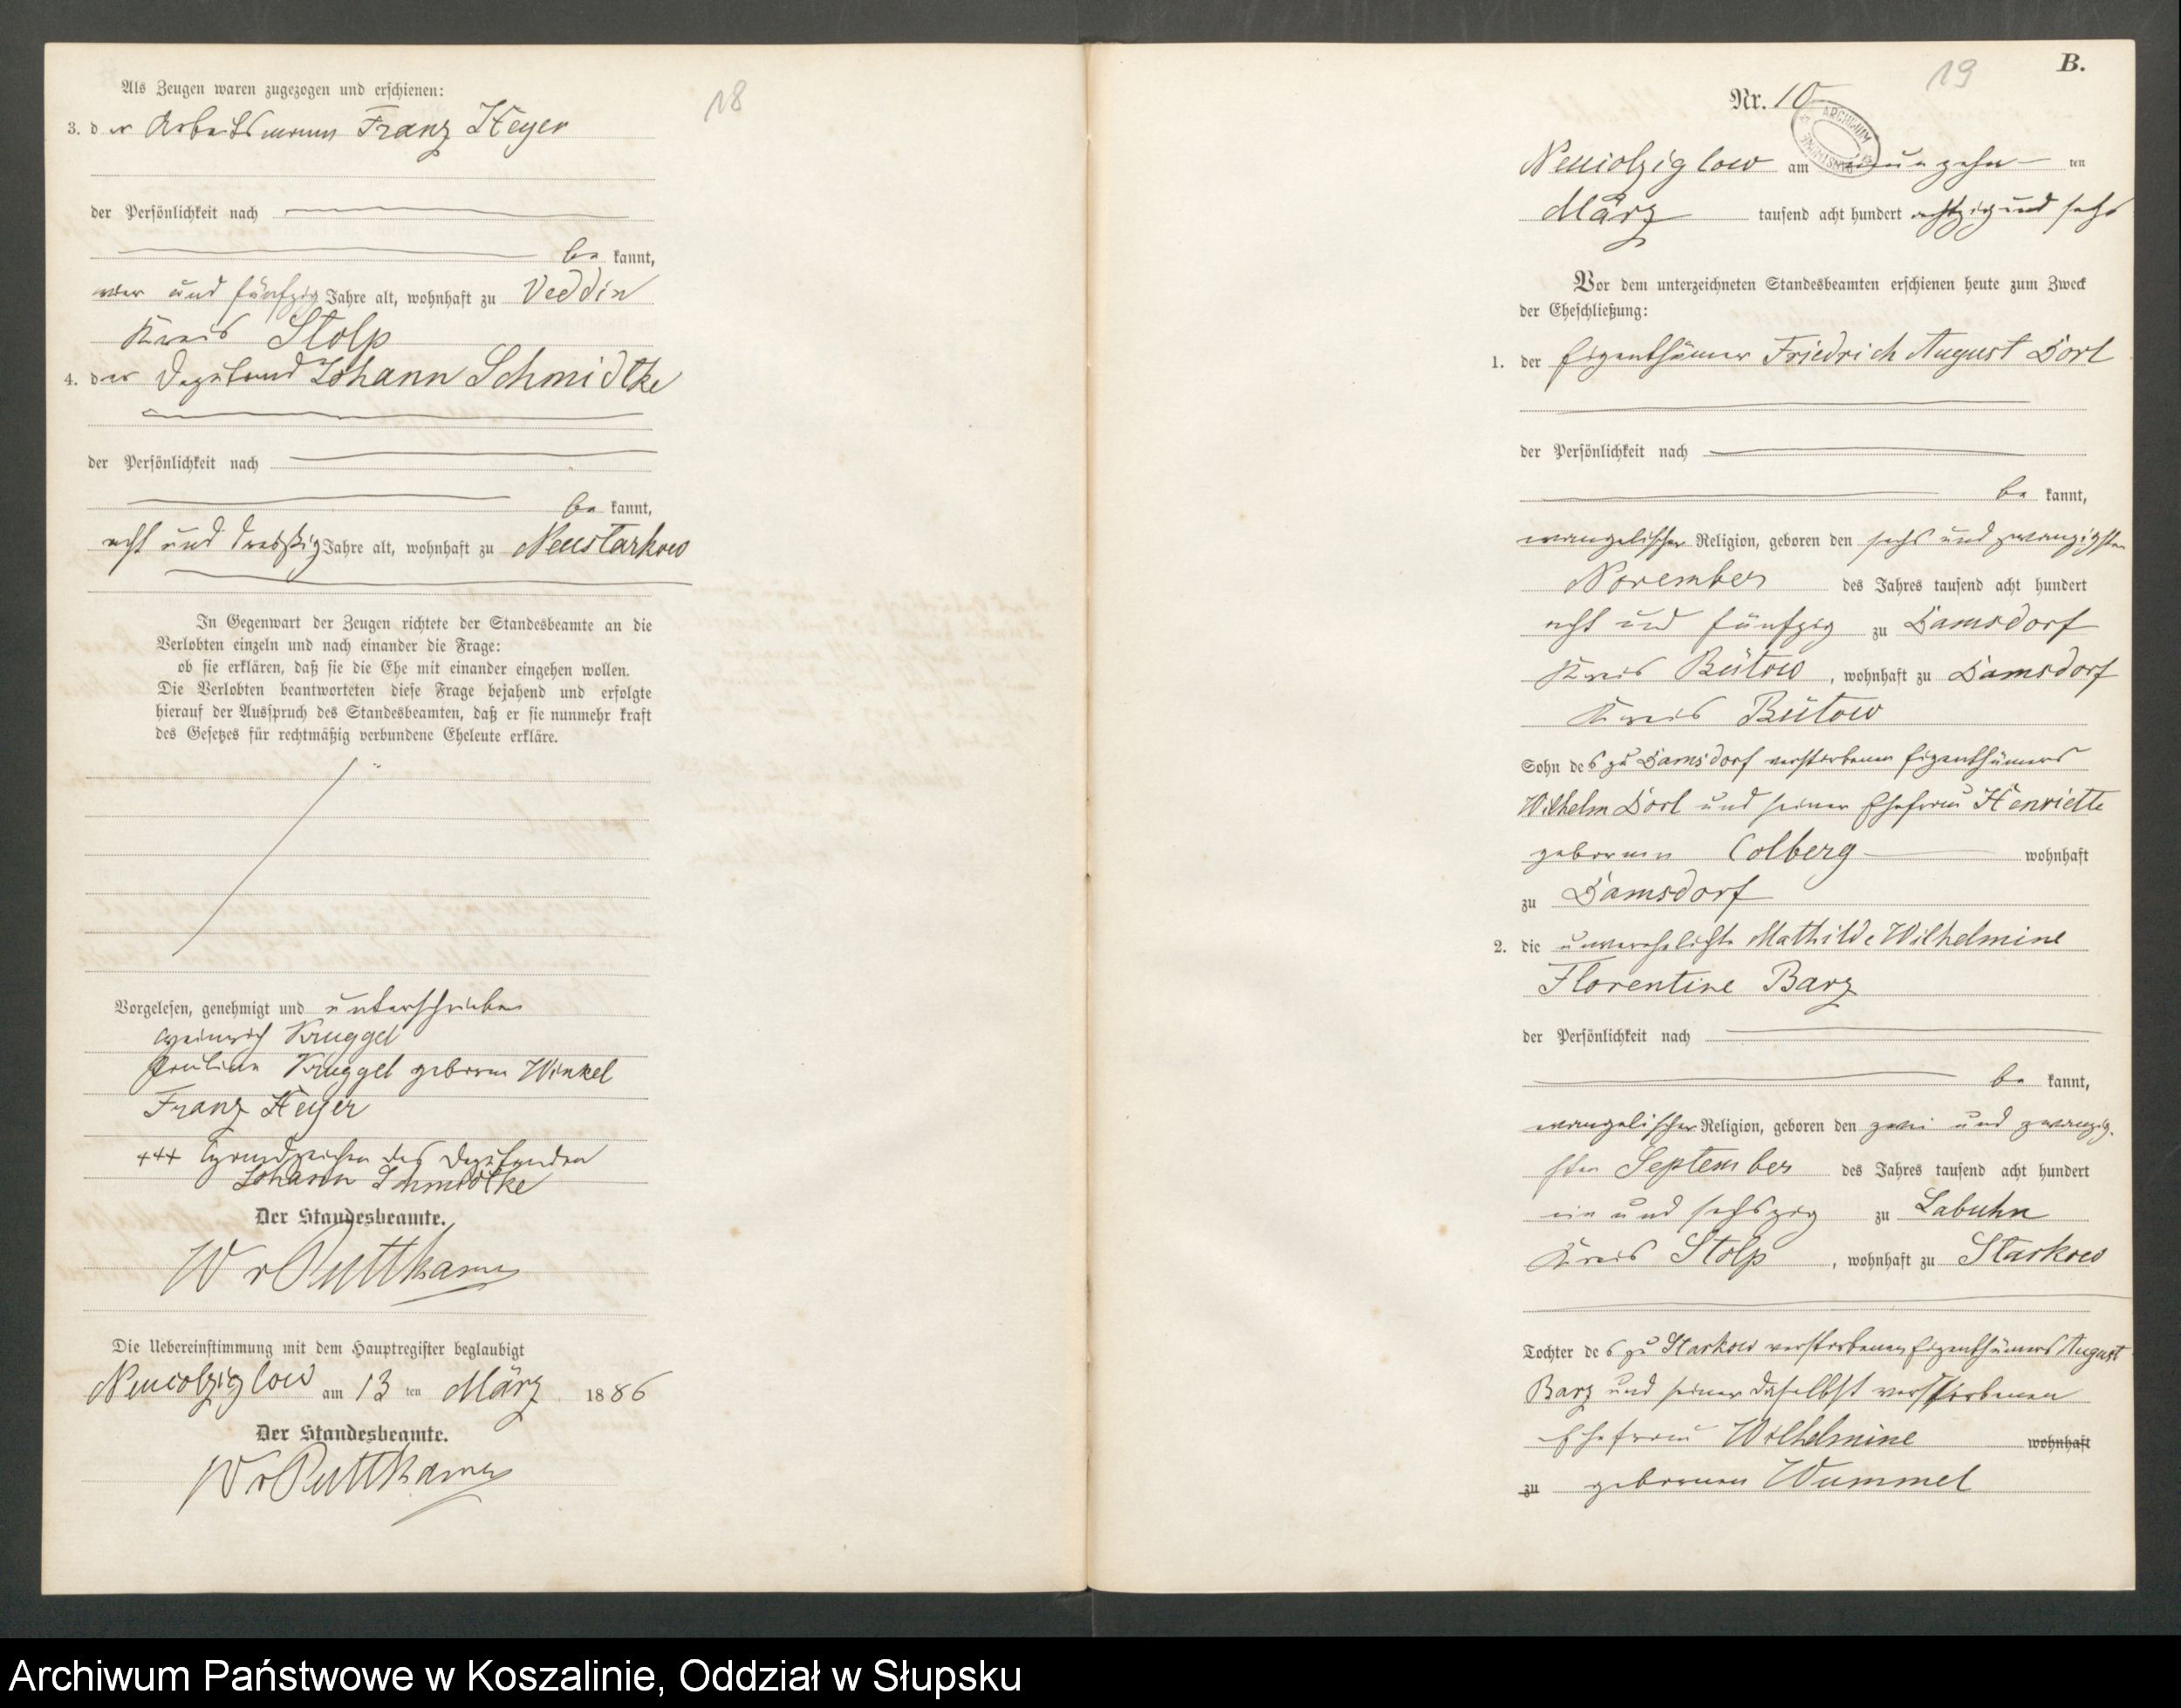 18
Als Zeugen waren zugezogen und erschienen:
3. der Arbeitsmann Franz Heyer
der Persönlichkeit nach
be kannt,
und fünfzig Jahre alt, wohnhaft zu Veddin
Kreis Stolp
4. der Deputand Johann Schmidtke
der Persönlichkeit nach
be kannt,
acht und dreißig Jahre alt, wohnhaft zu Neustarkow
In Gegenwart der Zeugen richtete der Standesbeamte an die
Verlobten einzeln und nach einander die Frage:
ob sie erklären, daß sie die Ehe mit einander eingehen wollen.
Die Verlobten beantworteten diese Frage bejahend und erfolgte
hierauf der Ausspruch des Standesbeamten, daß er sie nunmehr kraft
des Gesetzes für rechtmäßig verbundene Eheleute erkläre.
Vorgelesen, genehmigt und unterschrieben
Heinrich Kruggel
Pauline Kruggel geborne Winkel
Franz Heyer
+++ Handzeichen des Deputanden
Johann Schmidtke
Der Standesbeamte.
W v Puttkamer
Die Uebereinstimmung mit dem Hauptregister beglaubigt
Neucolziglow am 13 ten März 1886
Der Standesbeamte.
W v Puttkamer
19
B.
Nr. 10
ARCHIWUM
Neucolziglow am neunzehn ten
März tausend acht hundert achtzig und sechs
Vor dem unterzeichneten Standesbeamten erschienen heute zum Zweck
der Eheschließung:
1. der Eigenthümer Friedrich August Dorl
der Persönlichkeit nach
be kannt,
evangelischer Religion, geboren den sechs und zwanzigsten
November des Jahres tausend acht hundert
acht und fünfzig zu Damsdorf
Kreis Bütow, wohnhaft zu Damsdorf
Kreis Bütow
Sohn des zu Damsdorf verstorbenen Eigenthümers
Wilhelm Dorl und seiner Ehefrau Henriette
gebornen Colberg wohnhaft
zu Damsdorf
2. die unverehelichte Mathilde Wilhelmine
Florentine Barz
der Persönlichkeit nach
be kannt,
evangelischer Religion, geboren den zwei und zwanzig-
sten September des Jahres tausend acht hundert
ein und sechszig zu Labuhn
Kreis Stolp, wohnhaft zu Starkow
Tochter des zu Starkow verstorbenen Eigenthümers August
Barz und seiner daselbst verstorbenen
Ehefrau Wilhelmine wohnhaft
zu gebornen Wummel
Archiwum Państwowe w Koszalinie, Oddział w Słupsku